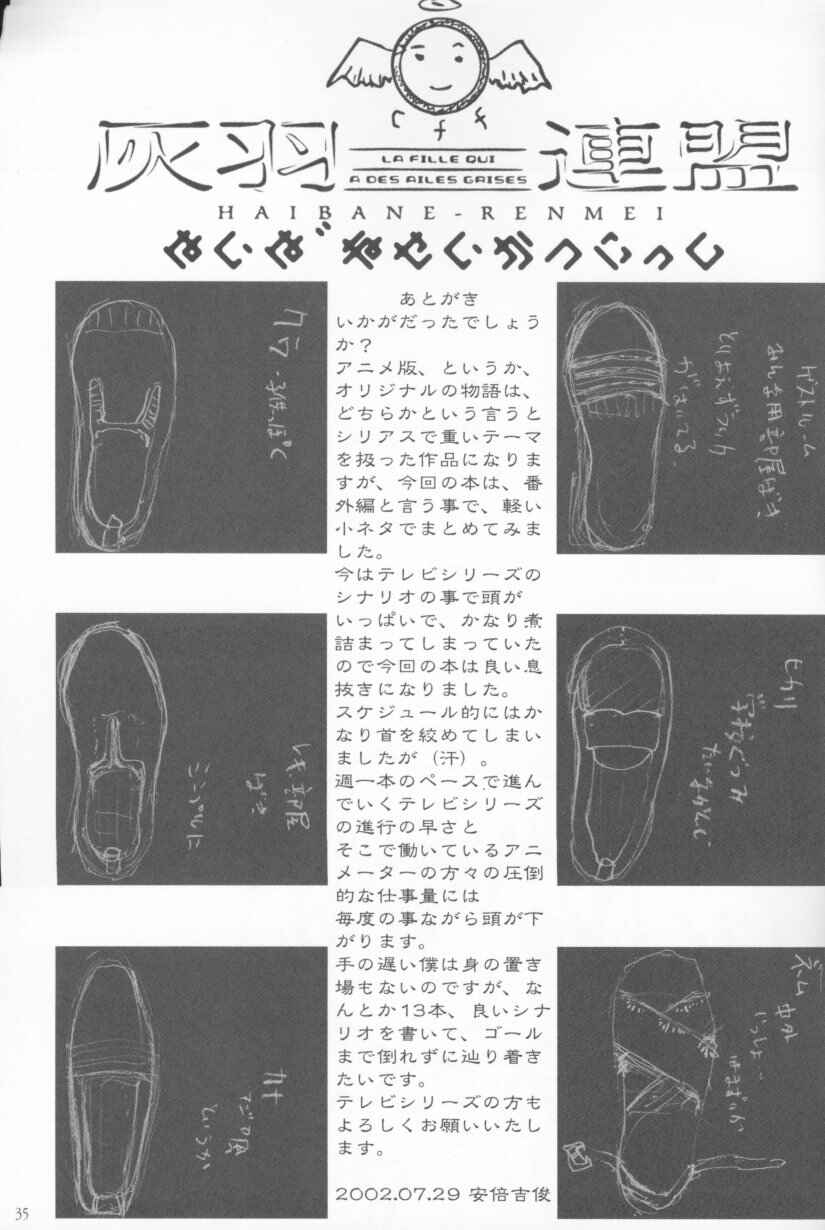 灰羽連盟
LA FILLE QUI
A DES AILES GRISES
HAIBANE-RENMEI
はいばねせいかついっし
あとがき
いかがだったでしょう
か？
アニメ版、というか、
オリジナルの物語は、
どちらかという言うと
シリアスで重いテーマ
を扱った作品になりま
すが、今回の本は、番
外編と言う事で、軽い
小ネタでまとめてみま
した。
今はテレビシリーズの
シナリオの事で頭が
いっぱいで、かなり煮
詰まってしまっていた
ので今回の本は良い息
抜きになりました。
スケジュール的にはか
なり首を絞めてしまい
ましたが（汗）。
週一本のペースで進ん
でいくテレビシリーズ
の進行の早さと
そこで働いているアニ
メーターの方々の圧倒
的な仕事量には
毎度の事ながら頭が下
がります。
手の遅い僕は身の置き
場もないのですが、な
んとか13本、良いシナ
リオを書いて、ゴール
まで倒れずに辿り着き
たいです。
テレビシリーズの方も
よろしくお願いいたし
ます。
2002.07.29 安倍吉俊
クラ・子供っぽく
ゲストルーム
ヒカリ
カナ
というか
35